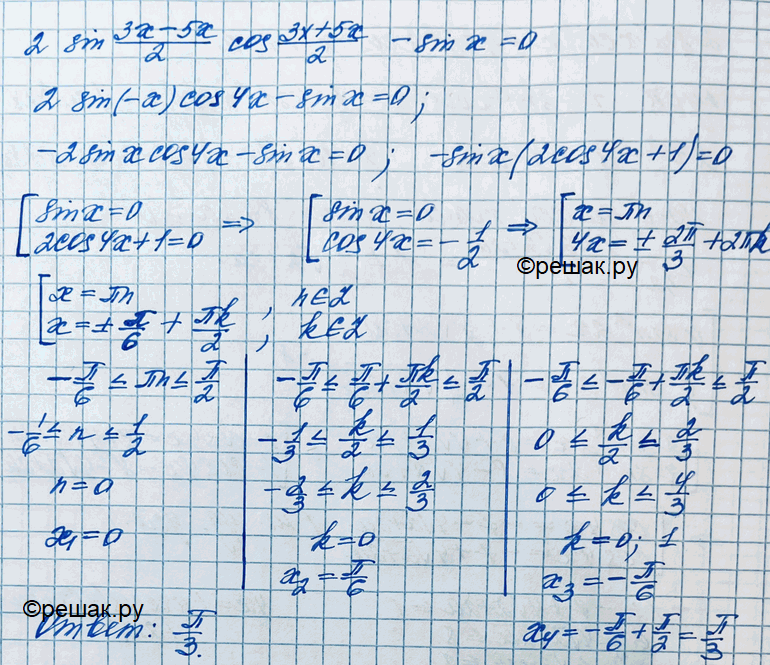 2 sin (3x-5x)/2 cos (3x+5x)/2 - sin x = 0
2 sin(-x) cos 4x - sin x = 0;
-2 sin x cos 4x - sin x = 0; -sin x (2cos 4x + 1) = 0
[sin x = 0 => [sin x = 0 => [x = πn
2cos 4x + 1 = 0 cos 4x = -1/2 4x = ± 2π/3 + 2πk
©решак.ру
[x = πn, n∈Z
x = ± π/6 + πk/2, k∈Z
-π/6 ≤ πn ≤ π/2
-1/6 ≤ n ≤ 1/2
n = 0
x₁ = 0
-π/6 ≤ π/6 + πk/2 ≤ π/2
-1/3 ≤ k/2 ≤ 1/3
-2/3 ≤ k ≤ 2/3
k = 0
x₂ = π/6
-π/6 ≤ -π/6 + πk/2 ≤ π/2
0 ≤ k/2 ≤ 2/3
0 ≤ k ≤ 4/3
k = 0; 1
x₃ = -π/6
x₄ = -π/6 + π/2 = π/3
©решак.ру
Ответ: π/3.